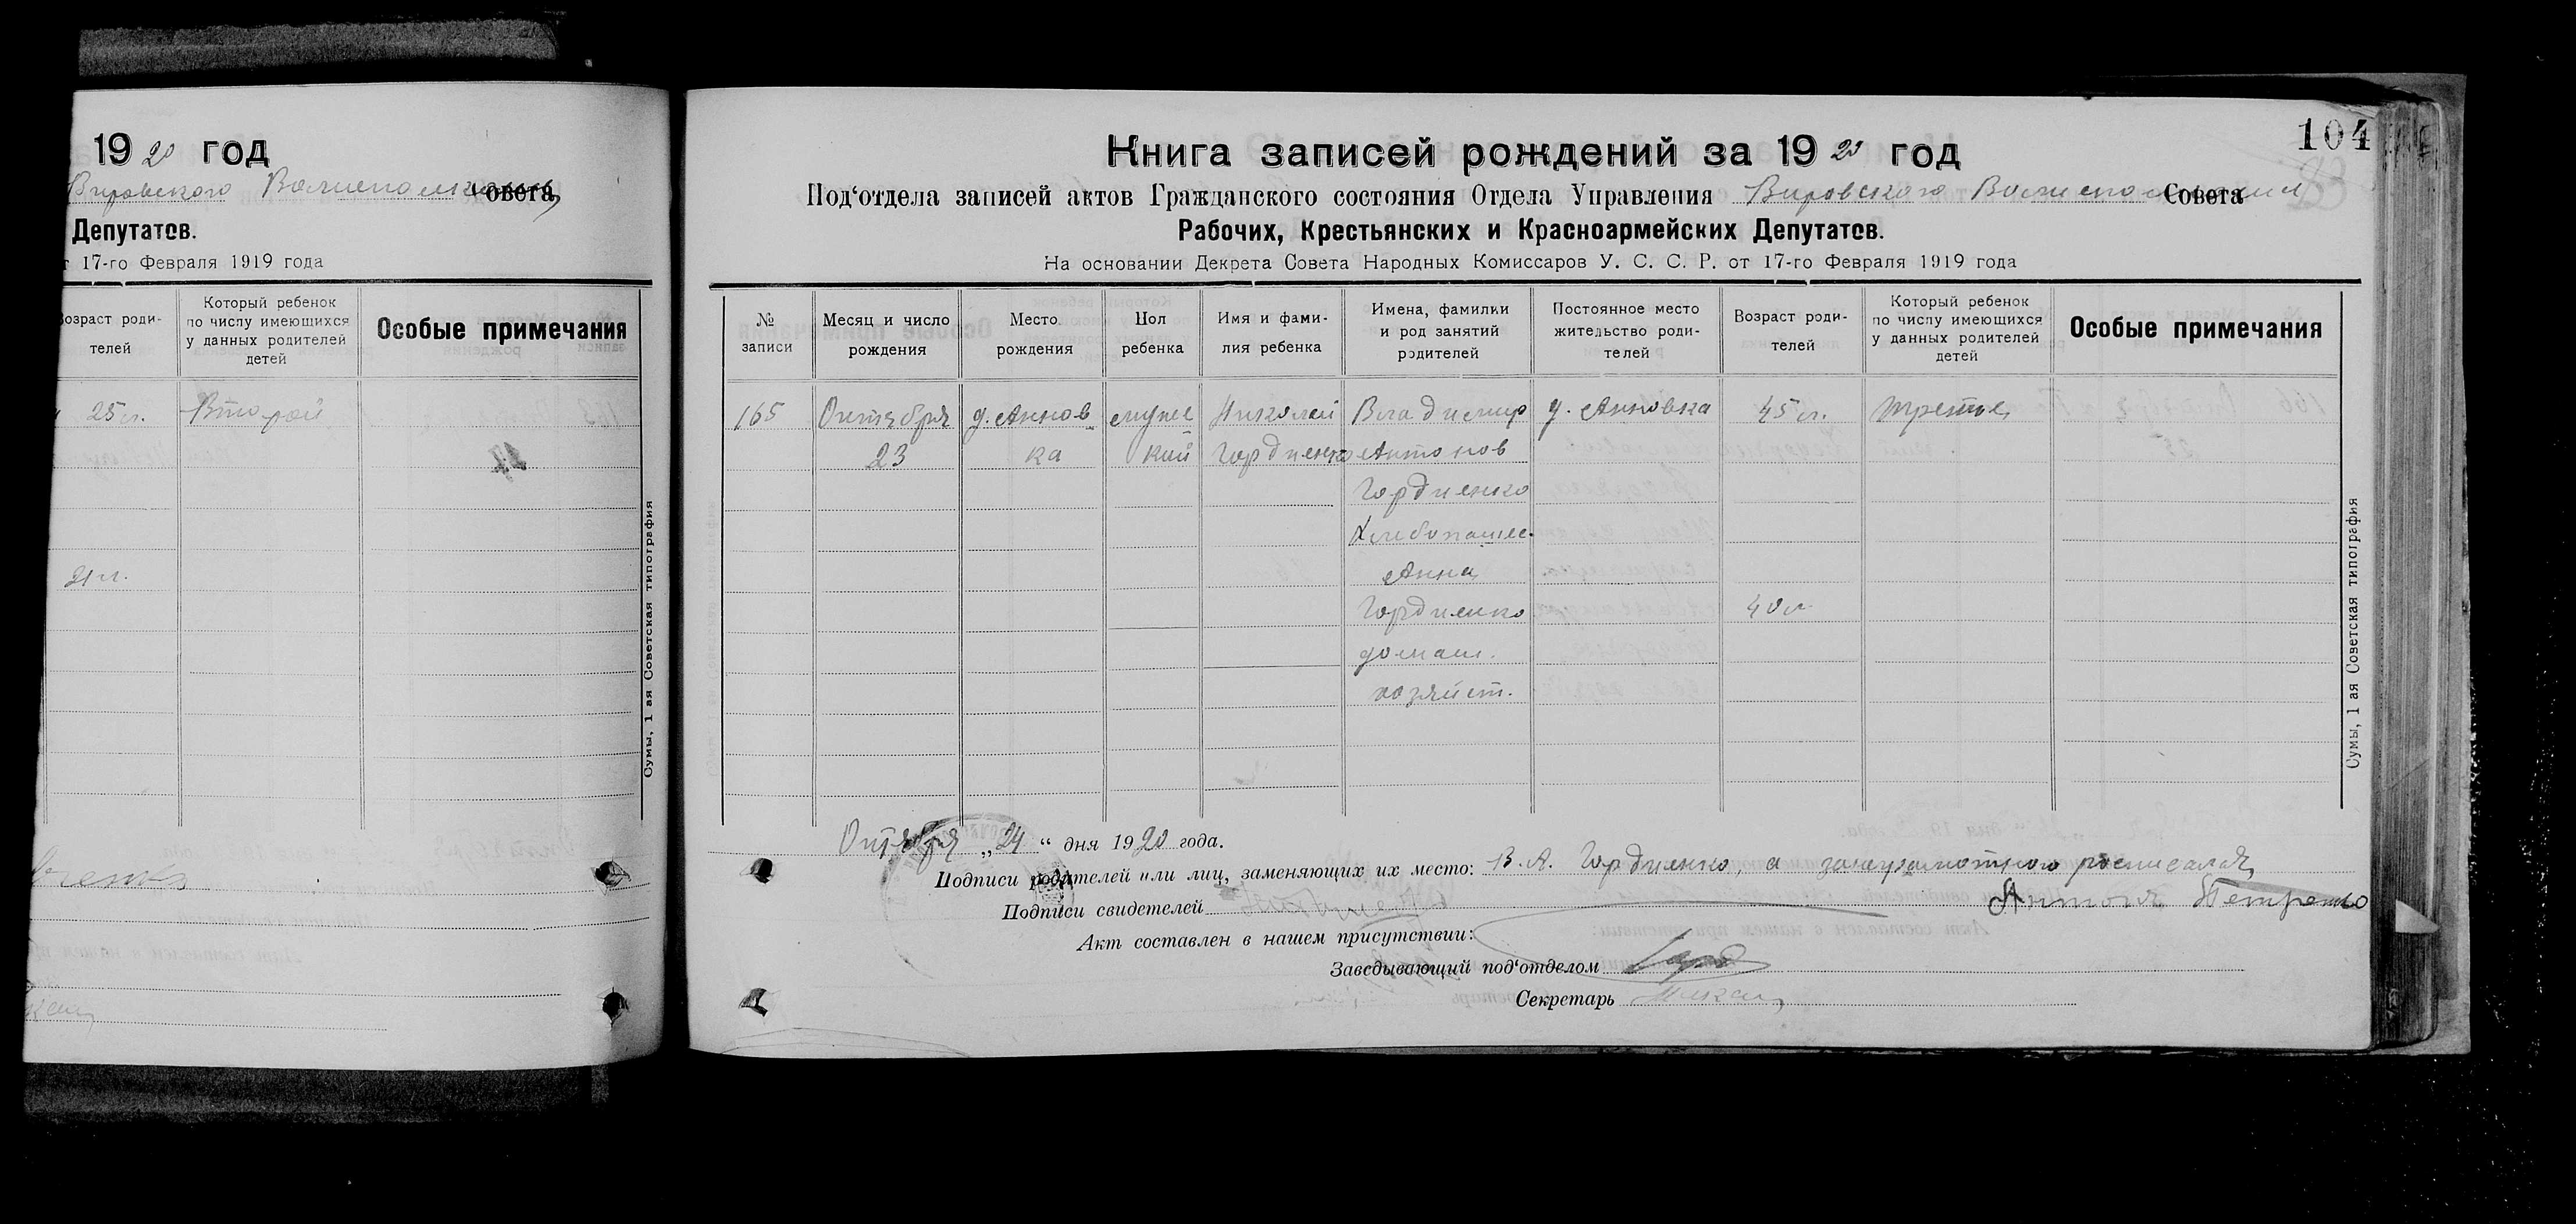 1920 год
Вировского Волисполкома Совета
Депутатов.
т 17-го Февраля 1919 года
Возраст роди-
телей
Который ребенок
по числу имеющихся
у данных родителей
детей
Особые примечания
25 л.
Второй
21 л.
Сумы, 1 ая Советская типография
104
Книга записей рождений за 1920 год
Под‘отдела записей актов Гражданского состояния Отдела Управления Вировского Волисполкома Совета
Рабочих, Крестьянских и Красноармейских Депутатов.
На основании Декрета Совета Народных Комиссаров У. С. С. Р. от 17-го Февраля 1919 года
№
записи
Месяц и число
рождения
Место
рождения
Пол
ребенка
Имя и фами-
лия ребенка
Имена, фамилки
и род занятий
родителей
Постоянное место
жительство роди-
телей
Возраст роди-
телей
Который ребенок
по числу имеющихся
у данных родителей
детей
Особые примечания
165
Октября
23
д. Аннов
ка
мужс
кий
Николай
Гордиенко
Владимир
Антонов
Гордиенко
Хлебопашес.
Анна
Гордиенко
домаш.
хозяйст.
д. Анновка
45 л.
40 л.
третье
Сумы, 1 ая Советская типография
Октября „24“ дня 1920 года.
Подписи родителей или лиц, заменяющих их место: В. А. Гордиенко, а занеграмотного росписался
Антон Петренко
Подписи свидетелей
Акт составлен в нашем присутствии:
Заведывающий под‘отделом
Секретарь